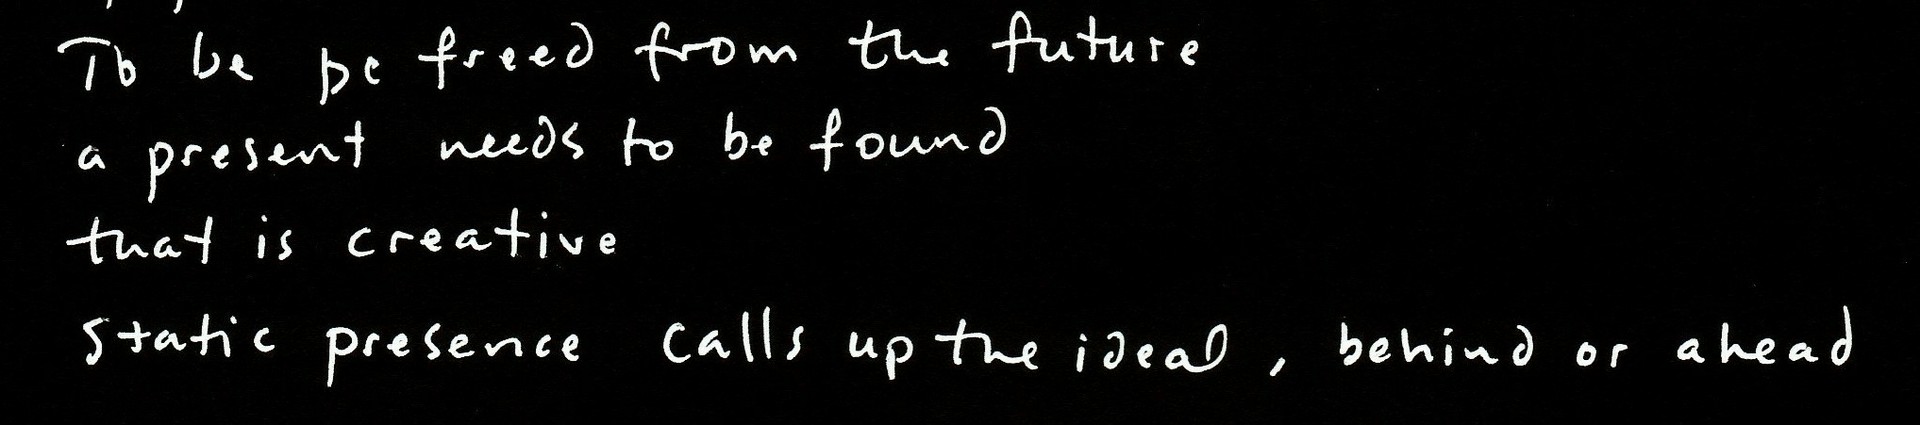 To be pc freed from the future
a present needs to be found
that is creative
static presence calls up the ideal, behind or ahead